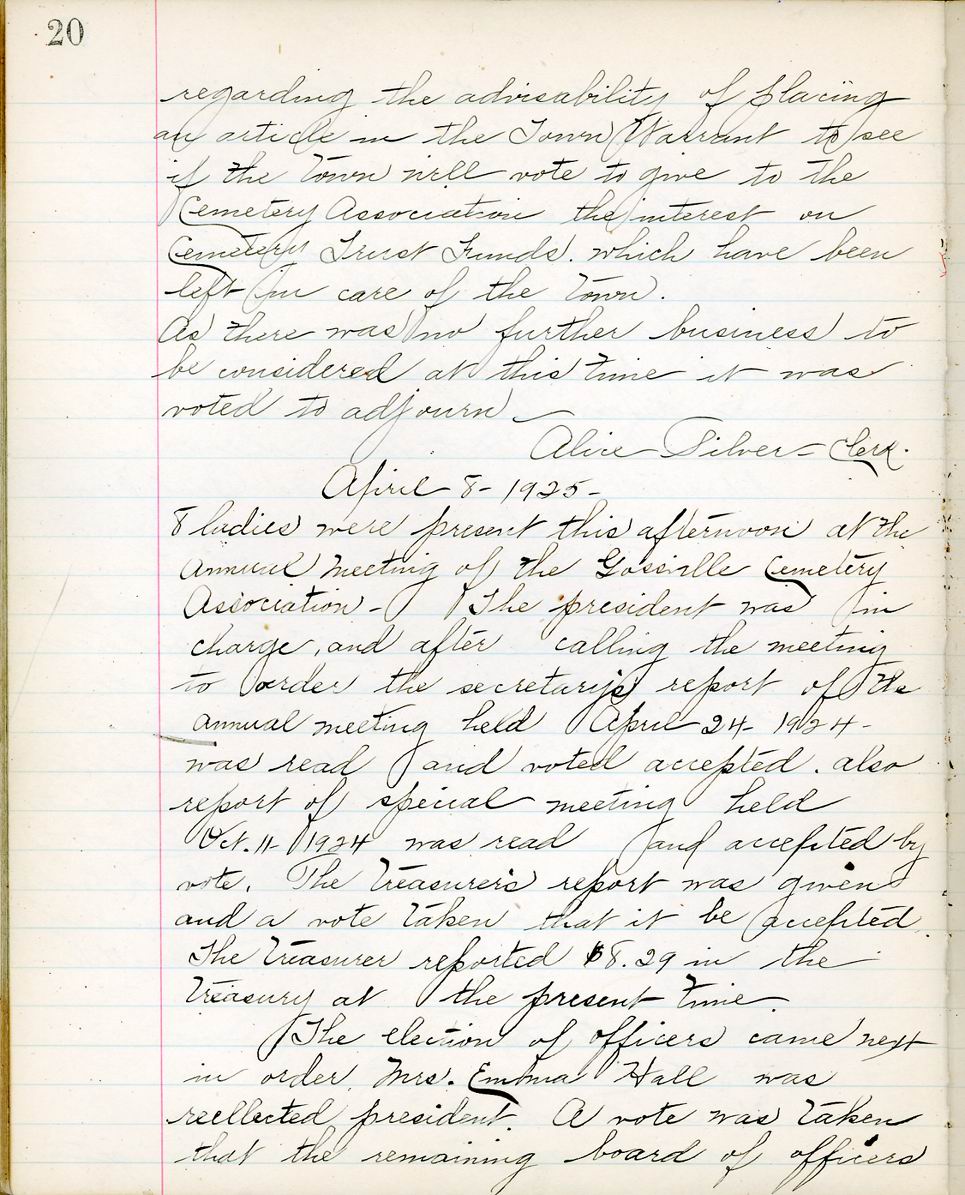 20
regarding the advisability of placing
an article in the Town Warrant to see
if the Town will vote to give to the
Cemetery Association the interest on
Cemetery Trust Funds. which have been
left in care of the Town.
As there was no further business to
be considered at this time it was
voted to adjourn
Alice Silver - Clerk.
April 8 - 1925 -
8 ladies were present this afternoon at the
annual meeting of the Gossville Cemetery
Association - The president was in
charge, and after calling the meeting
to order the secretary's report of the
annual meeting held April 24 - 1924 -
was read and voted accepted. also
report of special meeting held
Oct. 11 - 1924 was read and accepted by
vote. The Treasurer's report was given
and a vote taken that it be accepted.
The Treasurer reported $8.29 in the
Treasury at the present time
The election of officers came next
in order. Mrs. Emma Hall was
reellected president. A vote was taken
that the remaining board of officers